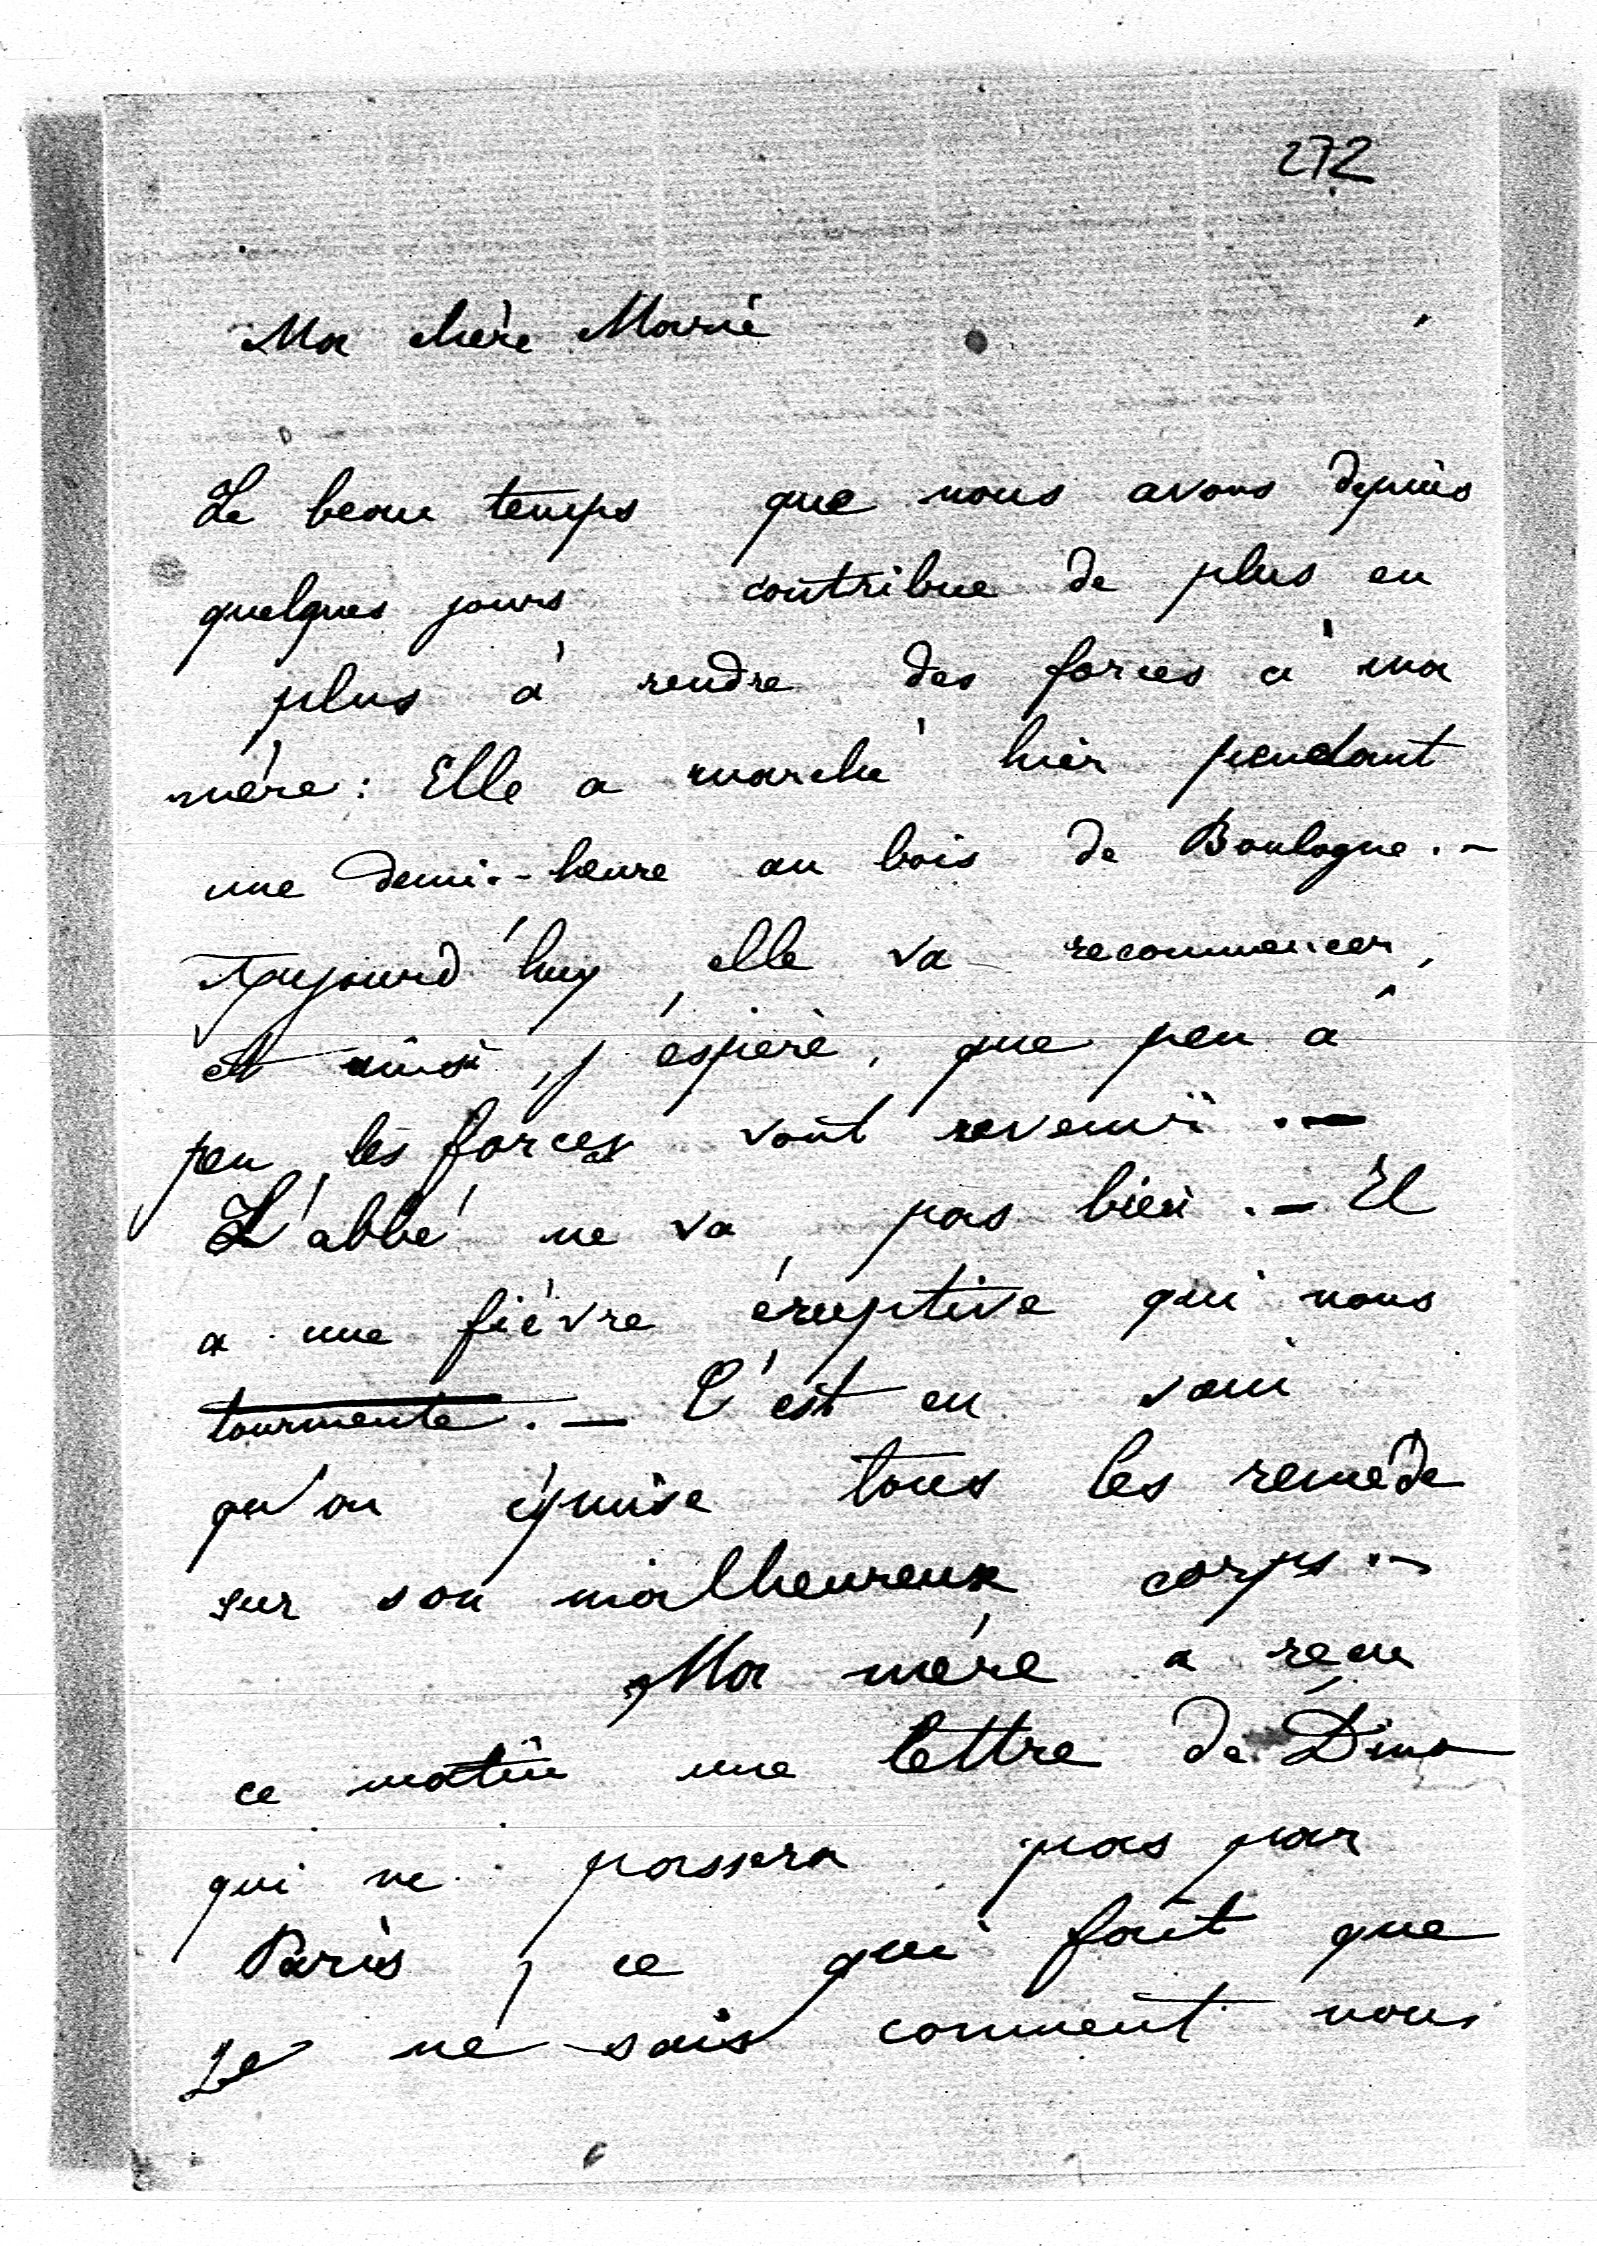 272
Ma chère Marie
Le beau temps que nous avons depuis
quelques jours contribue de plus en
plus à rendre des forces à ma
mère : Elle a marché hier pendant
une demi-heure au bois de Boulogne. -
Aujourd'huy elle va recommencer,
et ainsi, j'espère, que peu à
peu les forces vont revenir. -
L'abbé ne va pas bien. - Il
a une fièvre éruptive qui nous
tourmente. - C'est en vain
qu'on épuise tous les remède
sur son malheureux corps. -
Ma mère a reçu
ce matin une lettre de Dino
qui ne passera pas par
Paris, ce qui fait que
je ne sais comment nous